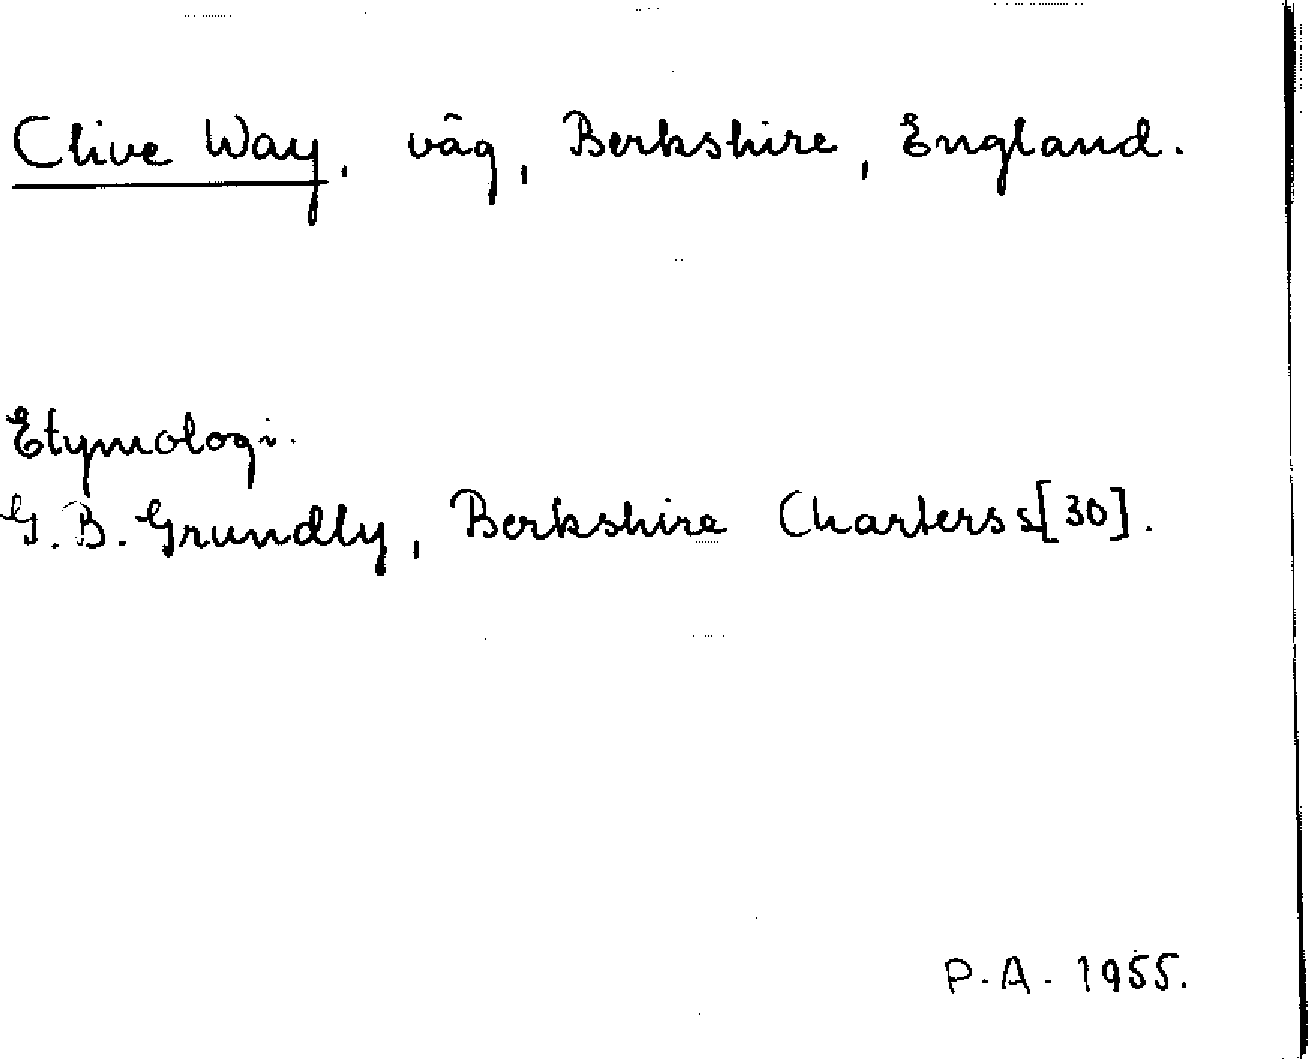 Clive Way, väg, Berkshire, England.
Etymologi.
G. B. Grundly, Berkshire Charters s[30].
P. A. 1955.